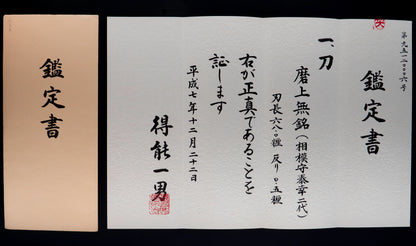 鑑定書
第九五一二〇〇六号
鑑定書
一、刀
磨上無銘(相模守泰幸二代)
刃長六八・〇糎 反り〇・五糎
右が正真であることを
証します
平成七年十二月二十二日
得能一男